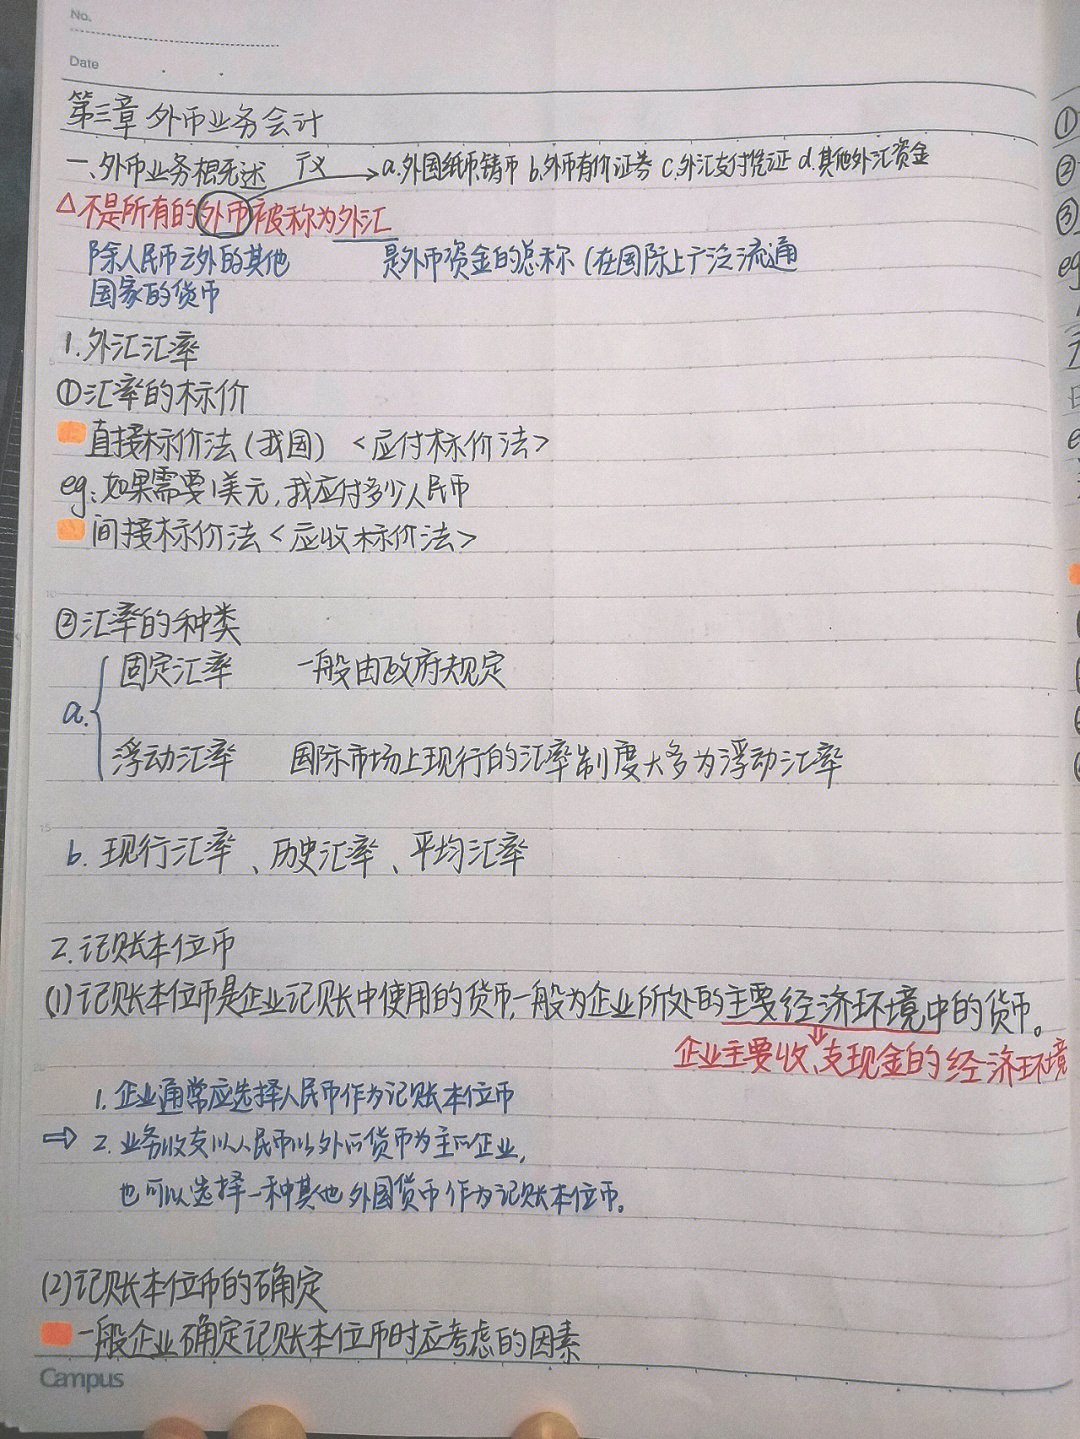 No.
Date
第三章 外币业务会计
一、外币业务概述 广义 → a.外国纸币铸币 b.外币有价证券 c.外汇支付凭证 d.其他外汇资金
△不是所有的外币被称为外汇
除人民币之外的其他 是外币资金的总称(在国际上广泛流通
国家的货币
1.外汇汇率
①汇率的标价
直接标价法(我国) <应付标价法>
eg:如果需要1美元,我应付多少人民币
间接标价法<应收标价法>
②汇率的种类
固定汇率 一般由政府规定
a.
浮动汇率 国际市场上现行的汇率制度大多为浮动汇率
b. 现行汇率、历史汇率、平均汇率
2.记账本位币
(1)记账本位币是企业记账中使用的货币,一般为企业所处的主要经济环境中的货币。
企业主要收、支现金的经济环境
1.企业通常应选择人民币作为记账本位币
⇒ 2.业务收支以人民币以外的货币为主的企业,
也可以选择一种其他外国货币作为记账本位币。
(2)记账本位币的确定
一般企业确定记账本位币时应考虑的因素
Campus
①
②
③
eg